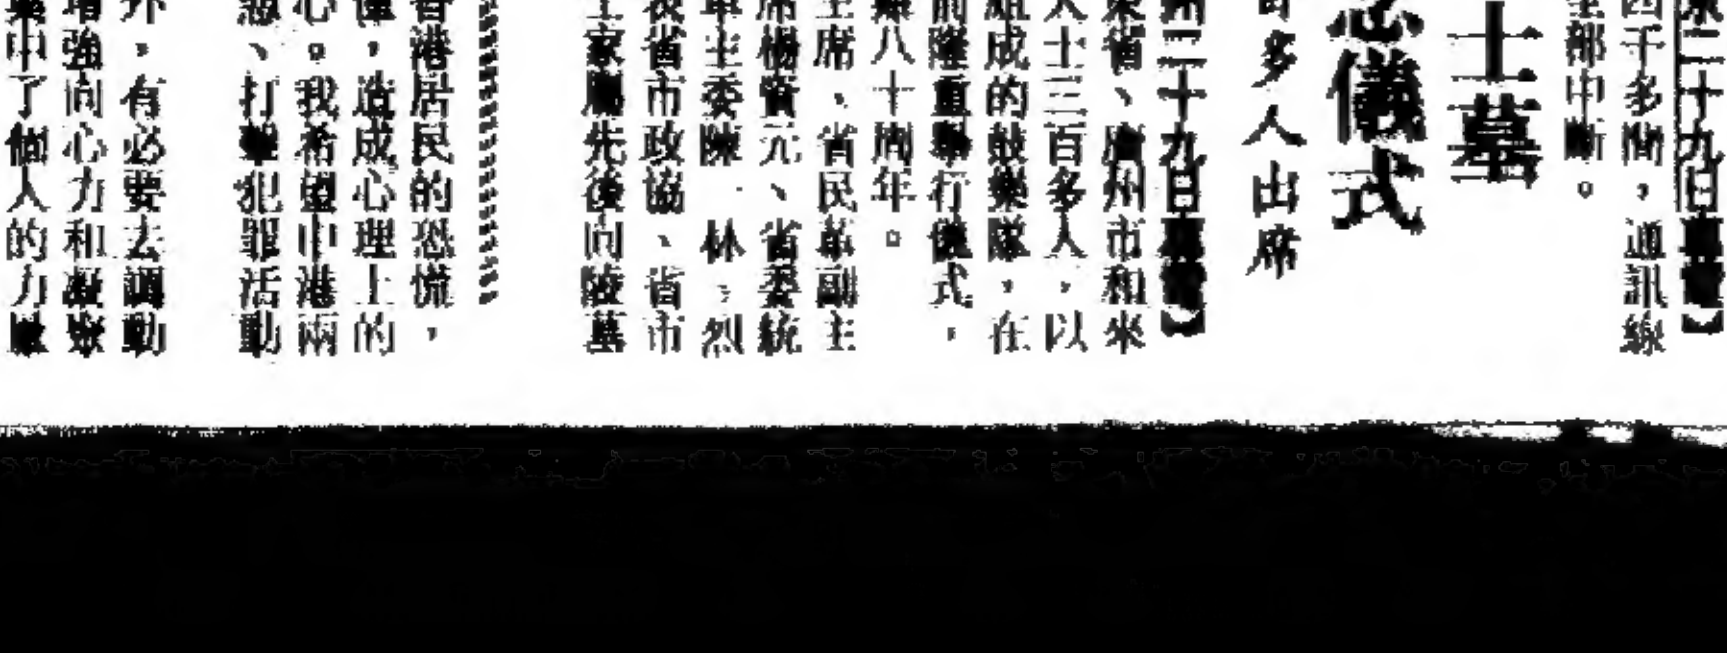 二十九日專電】
四千多間,通訊線
全部中斷。
士墓
念儀式
百多人出席
州二十九日專電】
東省、廣州市和來
人士三百多人,以
組成的鼓樂隊,在
前隆重舉行儀式,
難八十周年。
主席、省民革副主
席楊寶元、省委統
主委陳 林,烈
我省市政協、省市
士家屬先後向陵墓
香港居民的恐慌,
,造成心理上的
心。我希望中港兩
、打擊犯罪活動
外,有必要去調動
增強向心力和凝聚
集中了個人的力